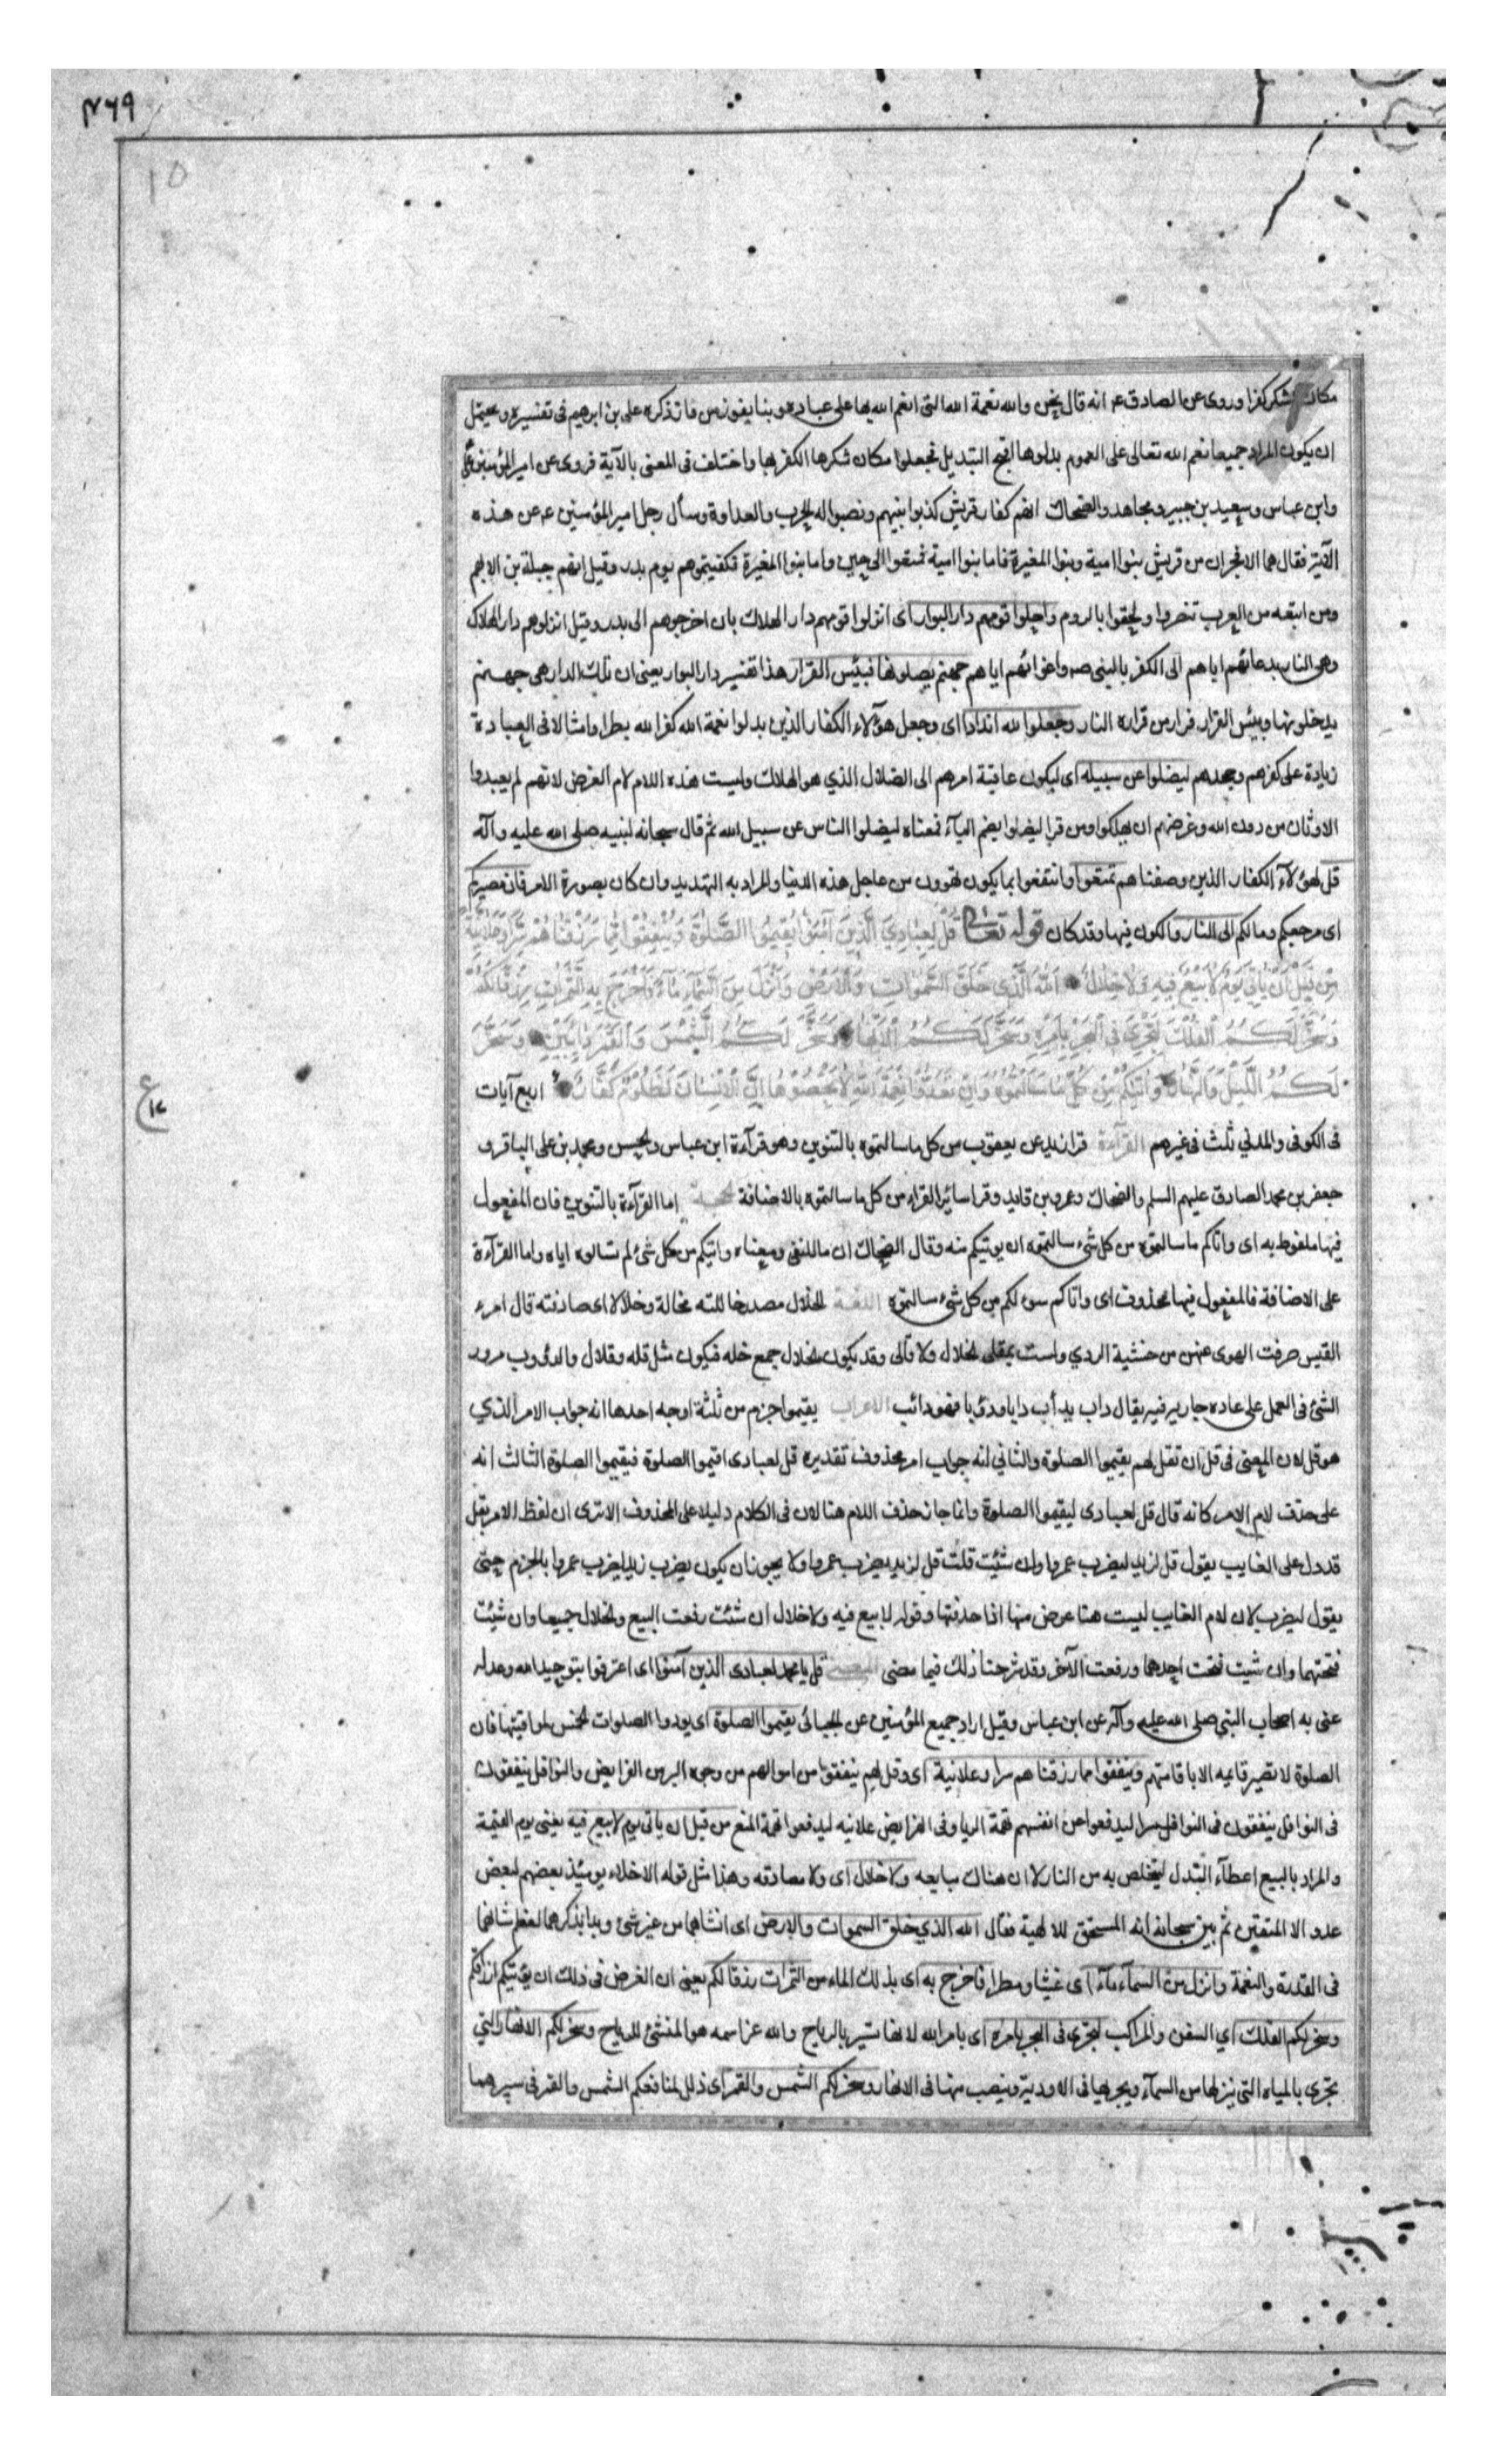 ۴۶۹
۱۵
مكان شكر كفرا وروى عن الصادق ع انه قال نحن والله نعمة الله التى انعم الله بها على عباده وبنا يفوز من فاز ذكره على بن ابرهيم فى تفسيره ويحتمل
ان يكون المراد جميعا نعم الله تعالى على العموم بدلوها اقبح التبديل فجعلوا مكان شكرها الكفر بها واختلف فى المعنى بالآية فروى عن امير المؤمنين على
وابن عباس وسعيد بن جبير ومجاهد والضحاك انهم كفار قريش كذبوا نبيهم ونصبوا له الحرب والعداوة وسأل رجل امير المؤمنين ع عن هذه
الآية فقال هما الافجران من قريش بنوا امية وبنوا المغيرة فاما بنوا امية فمتعوا الى حين واما بنوا المغيرة فكفيتموهم يوم بدر وقيل انهم جبلة بن الايهم
ومن اتبعه من العرب تنصروا ولحقوا بالروم واحلوا قومهم دار البوار اى انزلوا قومهم دار الهلاك بان اخرجوهم الى بدر وقيل انزلوهم دار الهلاك
وهى النار بدعائهم اياهم الى الكفر بالنبى ص واغوائهم اياهم جهنم يصلونها فبئس القرار هذا تفسير دار البوار يعنى ان تلك الدار هى جهنم
يدخلونها وبئس القرار قرار من قراره النار وجعلوا لله اندادا اى وجعل هؤلاء الكفار الذين بدلوا نعمة الله كفرا لله نظرا وامثالا فى العبادة
زيادة على كفرهم وجحدهم ليضلوا عن سبيله اى ليكون عاقبة امرهم الى الضلال الذي هو الهلاك وليست هذه اللام لام الغرض لانهم لم يعبدوا
الاوثان من دون الله وغرضهم ان يهلكوا ومن قرا ليضلوا بضم اليآء فمعناه ليضلوا الناس عن سبيل الله ثم قال سبحانه لنبيه صلى الله عليه وآله
قل لهؤلآء الكفار الذين وصفناهم تمتعوا وانتفعوا بما يكون تهوون من عاجل هذه الدنيا والمراد به التهديد وان كان بصورة الامر فان مصيركم
اى مرجعكم ومالكم الى النار والكون فيها وقد كان قوله تعالى قُلْ لِعِبَادِيَ الَّذِينَ آمَنُوا يُقِيمُوا الصَّلٰوةَ وَيُنْفِقُوا مِمَّا رَزَقْنَاهُمْ سِرًّا وَعَلَانِيَةً
مِنْ قَبْلِ أَنْ يَأْتِيَ يَوْمٌ لَا بَيْعٌ فِيهِ وَلَا خِلَالٌ اَللّٰهُ الَّذِي خَلَقَ السَّمٰوَاتِ وَالْأَرْضَ وَأَنْزَلَ مِنَ السَّمَآءِ مَآءً فَأَخْرَجَ بِهِ مِنَ الثَّمَرَاتِ رِزْقًا لَكُمْ
وَسَخَّرَ لَكُمُ الْفُلْكَ لِتَجْرِيَ فِي الْبَحْرِ بِأَمْرِهِ وَسَخَّرَ لَكُمُ الْأَنْهَارَ وَسَخَّرَ لَكُمُ الشَّمْسَ وَالْقَمَرَ دَائِبَيْنِ وَسَخَّرَ
لَكُمُ اللَّيْلَ وَالنَّهَارَ وَآتٰيكُمْ مِنْ كُلِّ مَا سَأَلْتُمُوهُ وَإِنْ تَعُدُّوا نِعْمَةَ اللّٰهِ لَا تُحْصُوهَا إِنَّ الْإِنْسَانَ لَظَلُومٌ كَفَّارٌ اربع آيات
ع ١٧
فى الكوفى والمدني ثلث فى غيرهم القرآءة قرا زيد عن يعقوب من كل ما سالتموه بالتنوين وهو قرآءة ابن عباس والحسن ومحمد بن على الباقر و
جعفر بن محمد الصادق عليهم السلم والضحاك وعمرو بن قايد وقرا سائر القراء من كل ما سالتموه بالاضافة الحجة اما القرآءة بالتنوين فان المفعول
فيها ملفوظ به اى واتاكم ما سالتموه من كل شىء سالتموه ان يوتيكم منه وقال الضحاك ان ما للنفى ومعناه واتيكم من كل شئ لم تسالوه اياه واما القرآءة
على الاضافة فالمفعول فيها محذوف اى واتاكم سولكم من كل شىء سالتموه اللغة الخلال مصدر خاللته مخالة وخلالا اى صادقته قال امرء
القيس صرفت الهوى عنهن من خشية الردي ولست بمقلى الخلال ولا قالى وقد يكون الخلال جمع خله فيكون مثل قله وقلال والدؤوب مرور
الشئ فى العمل على عاده جاريه فيه يقال داب يدأب دابا ودؤبا فهو دائب الاعراب يقيموا جزم من ثلثة اوجه احدها انه جواب الامر الذي
هو قل لان المعنى فى قل ان تقل لهم يقيموا الصلوة والثاني انه جواب امر محذوف تقديره قل لعبادى اقيموا الصلوة فيقيموا الصلوة الثالث انه
على حذف لام الامر كانه قال قل لعبادى ليقيموا الصلوة وانما جاز حذف اللام هنا لان فى الكلام دليلا على المحذوف الا ترى ان لفظ الامر بقل
قد دل على الغايب يقول قل لزيد ليضرب عمروا وان شئت قلت قل لزيد يضرب عمروا ولا يجوز ان يكون يضرب زيد ليضرب عمروا بالجزم حتى
يقول ليضرب لان لام الغايب ليست هنا عوض منها اذا حذفتها وقوله لا بيع فيه ولا خلال ان شئت رفعت البيع والخلال جميعا وان شئت
فتحتهما وان شيت فتحت احدهما ورفعت الآخر وقد شرحنا ذلك فيما مضى المعنى قل يا محمد لعبادى الذين آمنوا اى اعترفوا بتوحيد الله وعدله
عنى به اصحاب النبي صلى الله عليه وآله عن ابن عباس وقيل اراد جميع المؤمنين عن الجبائى يقيموا الصلوة اى يودوا الصلوات الخمس لمواقيتها فان
الصلوة لا تصير قائمه الا باقامتهم وينفقوا مما رزقناهم سرا وعلانية اى وقل لهم ينفقوا من اموالهم من وجوه البر من الفرايض والنوافل ينفقون
فى النوافل ينفقون فى النوافل سرا ليدفعوا عن انفسهم تهمة الريا وفى الفرايض علانيه ليدفعوا تهمة المنع من قبل ان ياتى يوم لا بيع فيه يعنى يوم القيمة
والمراد بالبيع اعطآء البدل ليتخلص به من النار لا ان هناك مبايعه ولا خلال اى ولا مصادقه وهذا مثل قوله الاخلاء يومئذ بعضهم لبعض
عدو الا المتقين ثم بين سبحانه انه المستحق للالهية فقال الله الذي خلق السموات والارض اى انشاهما من غير شئ وبدا بذكرهما لعظم شانهما
فى القدرة والنعمة وانزل من السمآء مآء اى غيثا ومطرا فاخرج به اى بذلك الماء من الثمرات رزقا لكم يعنى ان الغرض فى ذلك ان يؤتيكم ارزاقكم
وسخر لكم الفلك اي السفن والمراكب لتجرى فى البحر بامره اى بامر الله لانها تسير بالرياح والله عز اسمه هو المنشئ للرياح وسخر لكم الانهار التي
تجري بالمياه التى ينزلها من السمآء ويجريها فى الاودية وينصب منها فى الانهار وسخر لكم الشمس والقمر اى ذلل لمنافعكم الشمس والقمر فى سيرهما